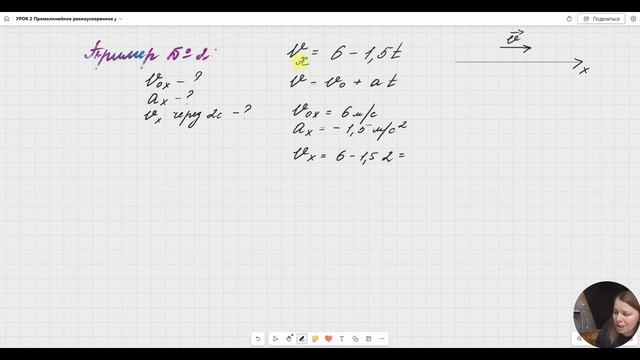 УРОК 2 Прямолинейное равноускоренное д
Поделиться
Пример № 2:
v₀ₓ - ?
aₓ - ?
vₓ через 2с - ?
vₓ = 6 - 1,5t
v = v₀ + at
v₀ₓ = 6 м/с
aₓ = - 1,5 м/с²
vₓ = 6 - 1,5 2 =
v⃗
x